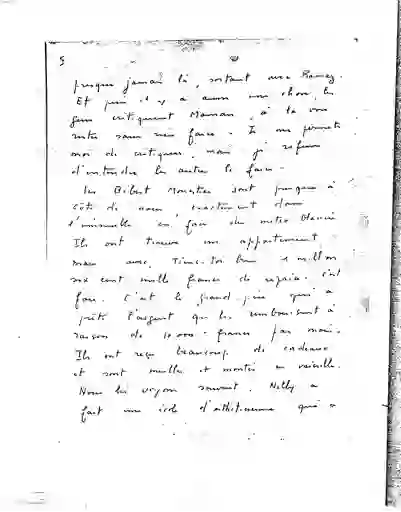 5
presque jamais là, sortant avec
Et puis il y a aussi une chose, les
gens critiquent Maman, à la voir
rester sans rien faire. Je me permets
moi de critiquer, mais je refuse
d'entendre les autres le faire.
Les sont presque à
côté de nous, exactement dans
l' en face du métro
Ils ont trouvé un appartement
mais avec million
six cent mille francs de reprise. C'est
fou. C'est le grand père qui a
prêté l'argent que les remboursent à
raison de 10.000 francs par mois.
Ils ont reçu beaucoup de cadeaux
et sont meublés et montés en vaisselle.
Nous les voyons souvent. Nelly a
fait une école d'esthéticienne qui a